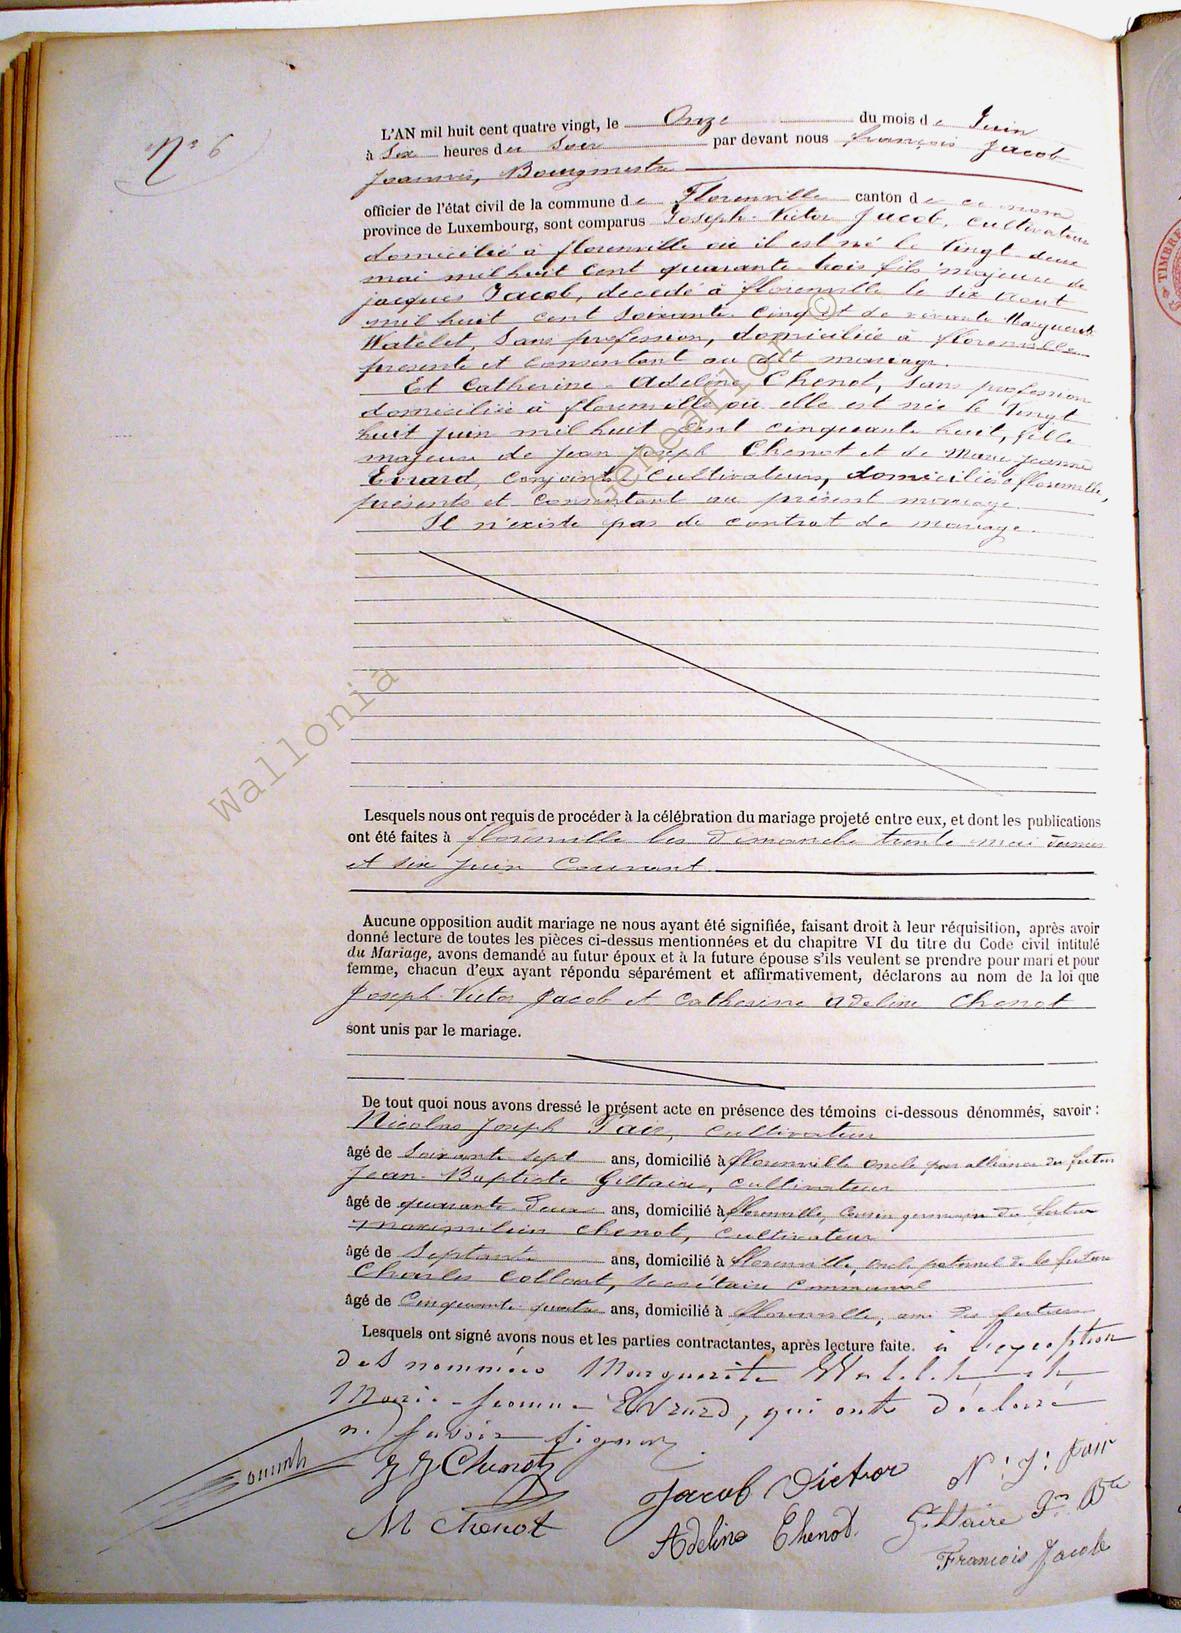 N° 6
L'AN mil huit cent quatre vingt, le Onze du mois de Juin
à Six heures du Soir par devant nous françois Jacob
Joannis, Bourgmestre
officier de l'état civil de la commune de Florenville canton de ce nom
province de Luxembourg, sont comparus Joseph-Victor Jacob, cultivateur
domicilié à florenville où il est né le vingt deux
mai mil huit cent quarante-trois fils majeur de
jacques Jacob, decedé à florenville le six aout
mil huit cent soixante-cinq et de vivante Marguerite
Watelet, Sans profession, domiciliée à florenville
presente et consentant au dit mariage.
Et Catherine-Adeline Chenot, Sans profession
domiciliée à florenville où elle est née le vingt
huit juin mil huit cent cinquante huit, fille
majeure de Jean Joseph Chenot et de Marie-Jeanne
Evrard, Conjoints Cultivateurs, domiciliés à florenville,
présents et consentant au présent mariage.
Il n'existe pas de contrat de mariage.
Lesquels nous ont requis de procéder à la célébration du mariage projeté entre eux, et dont les publications
ont été faites à florenville les Dimanche trente mai dernier
et six Juin Courant.
Aucune opposition audit mariage ne nous ayant été signifiée, faisant droit à leur réquisition, après avoir
donné lecture de toutes les pièces ci-dessus mentionnées et du chapitre VI du titre du Code civil intitulé
du Mariage, avons demandé au futur époux et à la future épouse s'ils veulent se prendre pour mari et pour
femme, chacun d'eux ayant répondu séparément et affirmativement, déclarons au nom de la loi que
Joseph-Victor Jacob et Catherine Adeline Chenot
sont unis par le mariage.
De tout quoi nous avons dressé le présent acte en présence des témoins ci-dessous dénommés, savoir :
Nicolas Joseph cultivateur
âgé de Soixante sept ans, domicilié à florenville oncle par alliance du futur
Jean-Baptiste Giltaire, cultivateur
âgé de quarante-deux ans, domicilié à florenville, cousin germain du futur
Maximilien Chenot, cultivateur
âgé de Septante ans, domicilié à florenville, oncle paternel de la future
Charles Collart, secrétaire communal
âgé de Cinquante quatre ans, domicilié à florenville, ami des futurs
Lesquels ont signé avons nous et les parties contractantes, après lecture faite. à l'exception
des nommées Marguerite Watelet et
Marie-Jeanne Evrard, qui ont déclaré
ne savoir signer.
J J Chenot
Jacob Victor
M Chenot
Adeline Chenot
Giltaire Jn Bte
François Jacob
Wallonia
Genealog ©
TIMBRE